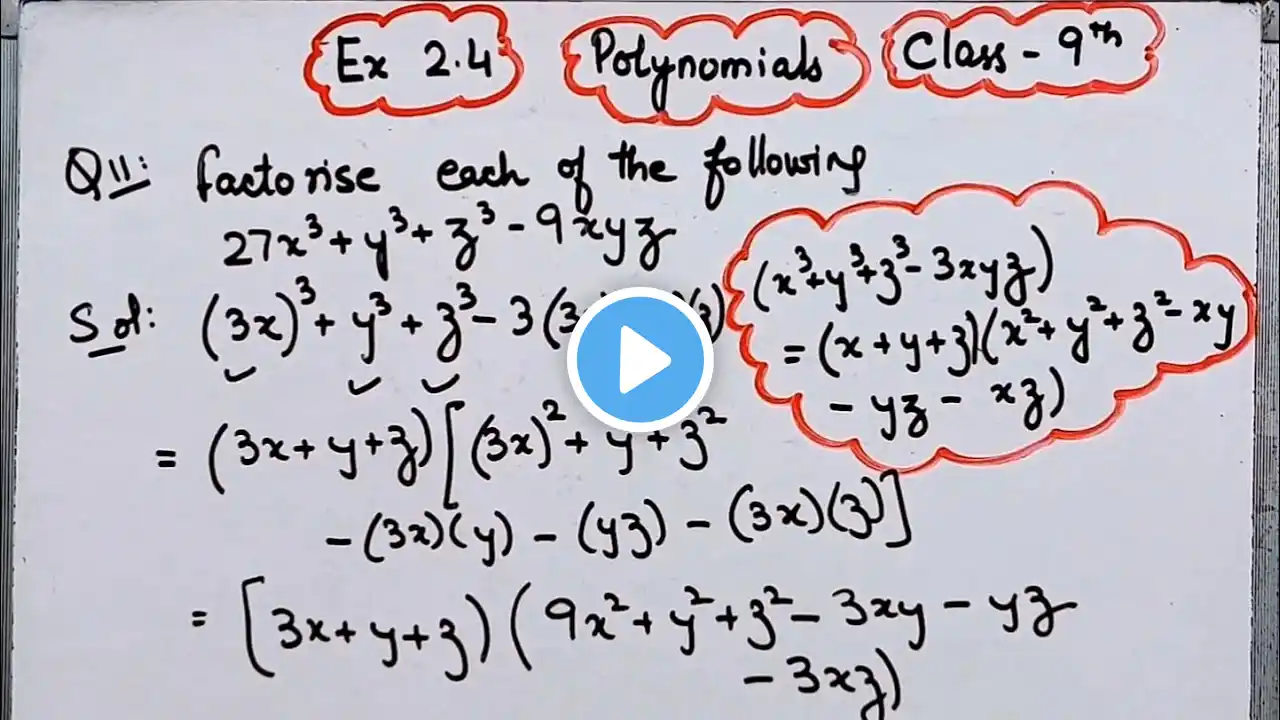 Ex 2.4 Polynomials Class - 9th
Q11: factorise each of the following
27x³ + y³ + z³ - 9xyz
Sol: (3x)³ + y³ + z³ - 3(3x
(x³+y³+z³- 3xyz)
= (x+y+z)(x²+ y²+ z²- xy
- yz - xz)
= (3x+ y+z)[(3x)²+ y + z²
- (3x)(y) - (yz) - (3x)(z)]
= [3x+ y+z)(9x²+ y²+ z²- 3xy - yz
- 3xz)